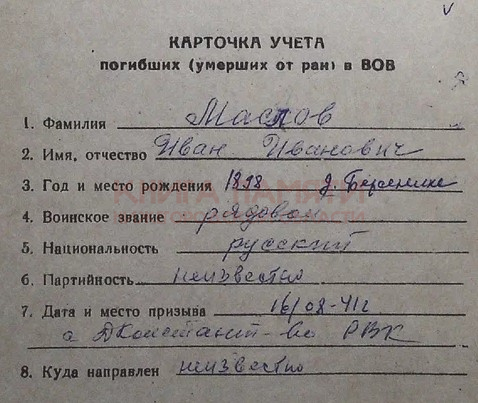 КАРТОЧКА УЧЕТА
погибших (умерших от ран) в ВОВ
1. Фамилия Маслов
2. Имя, отчество Иван Иванович
3. Год и место рождения 1898 д. Березники
КНИГА ПАМЯТИ
4. Воинское звание рядовой
5. Национальность русский
6. Партийность неизвестно
7. Дата и место призыва 16/08-41г
РВК
8. Куда направлен неизвестно